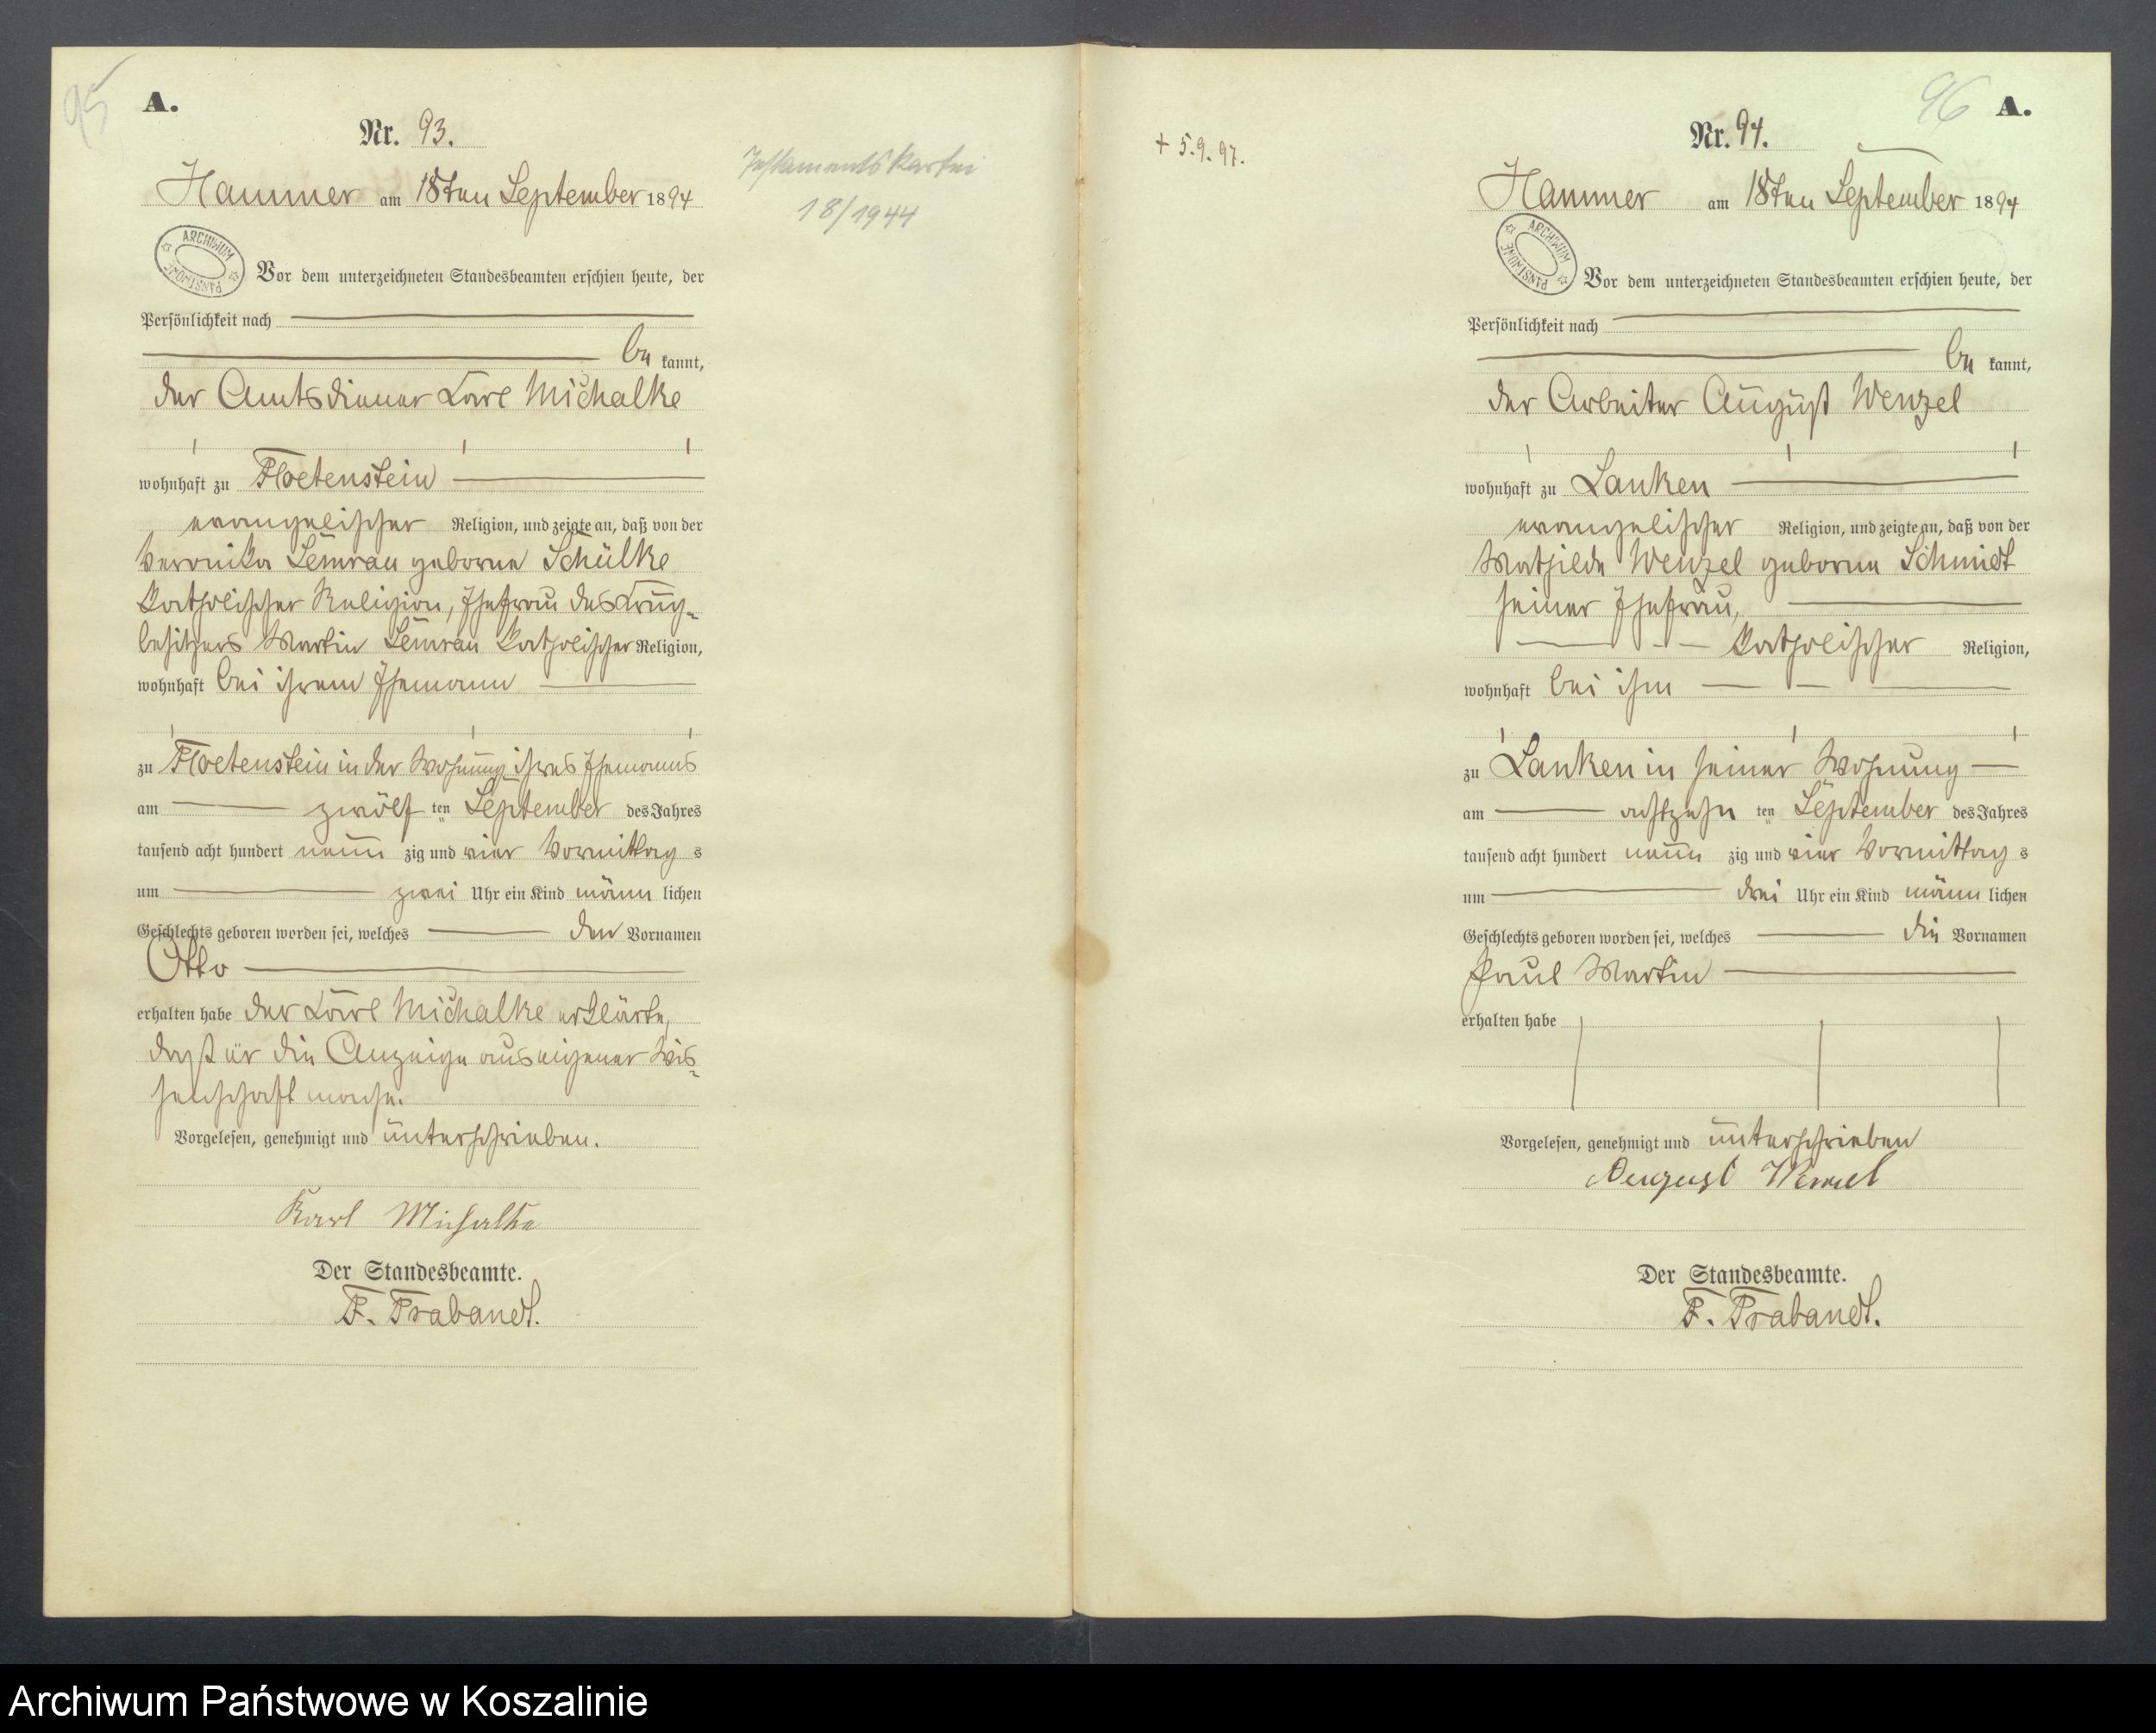 95
A.
Nr. 93.
Hammer am 18ten September 1894
Testamentskartei
18/1944
ARCHIWUM PAŃSTWOWE
Vor dem unterzeichneten Standesbeamten erschien heute, der
Persönlichkeit nach
be kannt,
der Amtsdiener Karl Michalke
wohnhaft zu Floetenstein
evangelischer Religion, und zeigte an, daß von der
Veronika Semrau geborne Schülke
katholischer Religion, Ehefrau des Krug-
besitzers Martin Semrau katholischer Religion,
wohnhaft bei ihrem Ehemann
zu Floetenstein in der Wohnung ihres Ehemanns
am zwölf ten September des Jahres
tausend acht hundert neun zig und vier Vormittag s
um zwei Uhr ein Kind männ lichen
Geschlechts geboren worden sei, welches den Vornamen
Otto
erhalten habe der Karl Michalke erklärte,
daß er die Anzeige aus eigener Wis-
senschaft mache.
Vorgelesen, genehmigt und unterschrieben.
Karl Michalke
Der Standesbeamte.
F. Trabandt.
+ 5.9.97.
96
A.
Nr. 94.
Hammer am 18ten September 1894
ARCHIWUM PAŃSTWOWE
Vor dem unterzeichneten Standesbeamten erschien heute, der
Persönlichkeit nach
be kannt,
der Arbeiter August Wenzel
wohnhaft zu Lanken
evangelischer Religion, und zeigte an, daß von der
Mathilde Wenzel geborne Schmidt
seiner Ehefrau,
katholischer Religion,
wohnhaft bei ihm
zu Lanken in seiner Wohnung
am achtzehn ten September des Jahres
tausend acht hundert neun zig und vier Vormittag s
um drei Uhr ein Kind männ lichen
Geschlechts geboren worden sei, welches die Vornamen
Paul Martin
erhalten habe
Vorgelesen, genehmigt und unterschrieben
August Wenzel
Der Standesbeamte.
F. Trabandt.
Archiwum Państwowe w Koszalinie